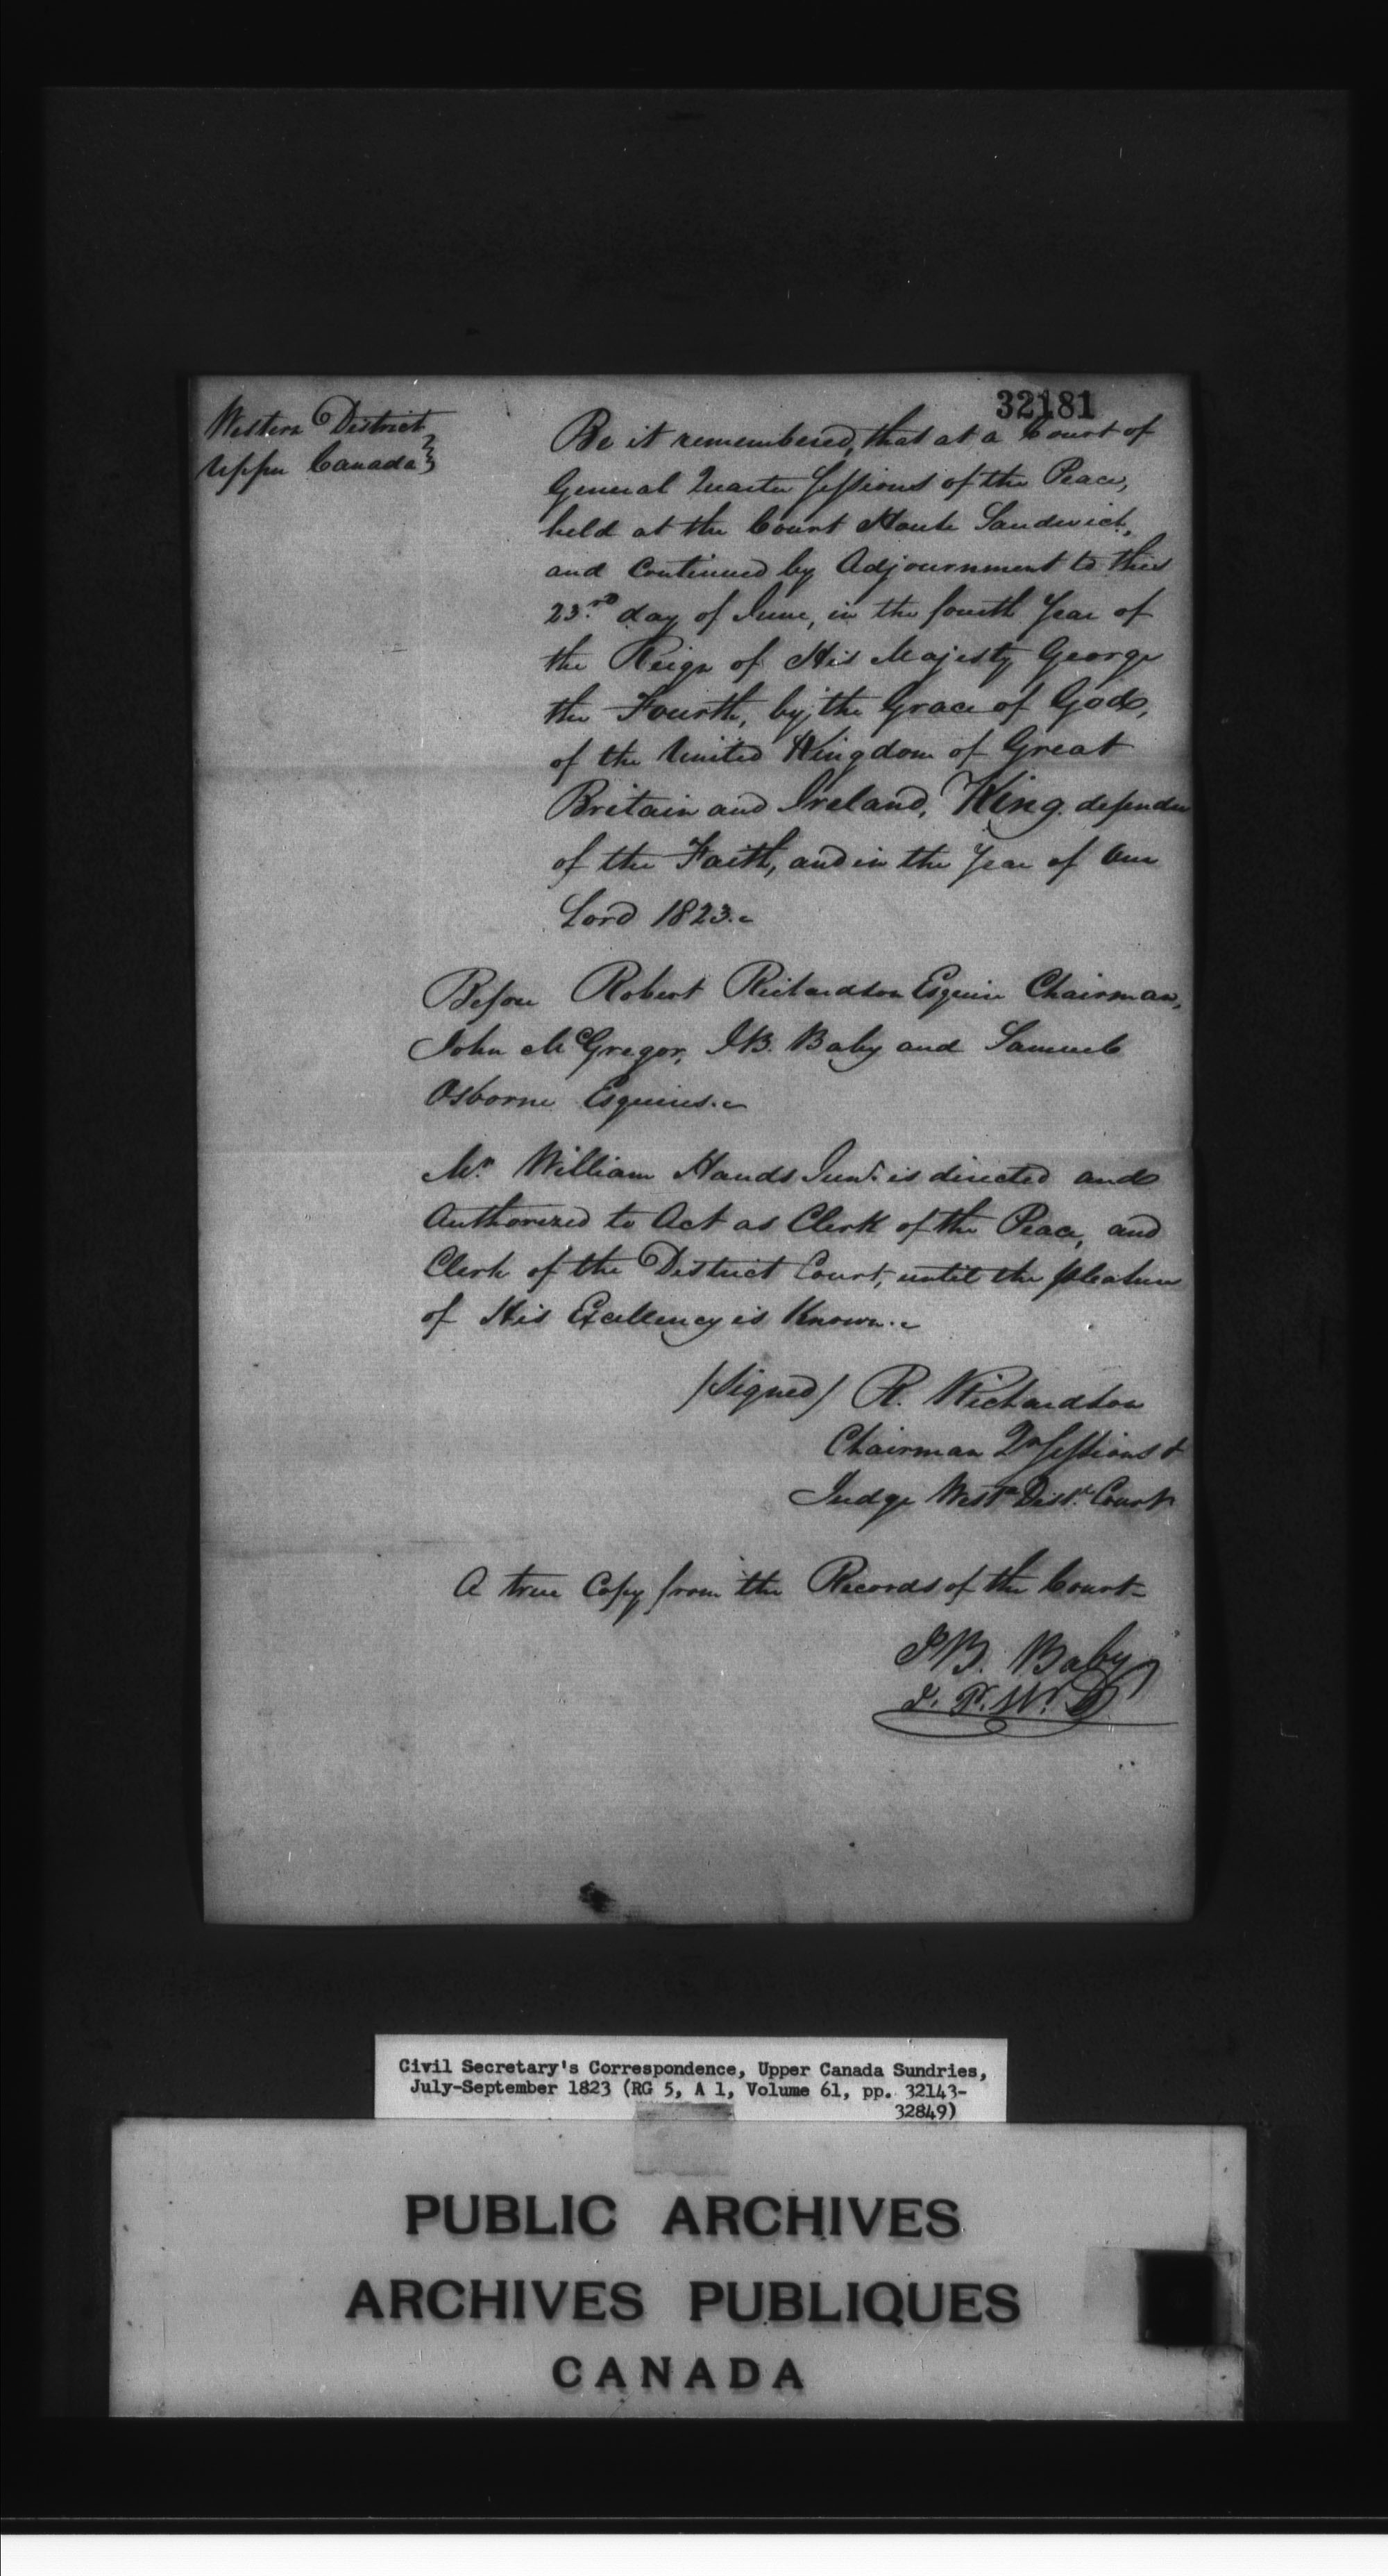 32181
Western District
Upper Canada
Be it remembered, that at a Court of
General Quarter Sessions of the Peace,
held at the Court House Sandwich,
and Continued by Adjournment to this
23.rd day of June, in the fourth Year of
the Reign of His Majesty George
the Fourth, by the Grace of God,
of the United Kingdom of Great
Britain and Ireland, King defender
of the Faith, and in the Year of Our
Lord 1823.
Before Robert Richardson Esquire Chairman,
John McGregor, J.B. Baby and Samuel
Osborne Esquires.
Mr. William Hands Junr. is directed and
Authorized to Act as Clerk of the Peace, and
Clerk of the District Court, until the pleasure
of His Excellency is Known.
/Signed/ R. Richardson
Chairman Qr Sessions &
Judge Westn Distt. Court
A true Copy from the Records of the Court
J.B. Baby
J. P. W. D
Civil Secretary's Correspondence, Upper Canada Sundries,
July-September 1823 (RG 5, A 1, Volume 61, pp. 32143-
32849)
PUBLIC ARCHIVES
ARCHIVES PUBLIQUES
CANADA